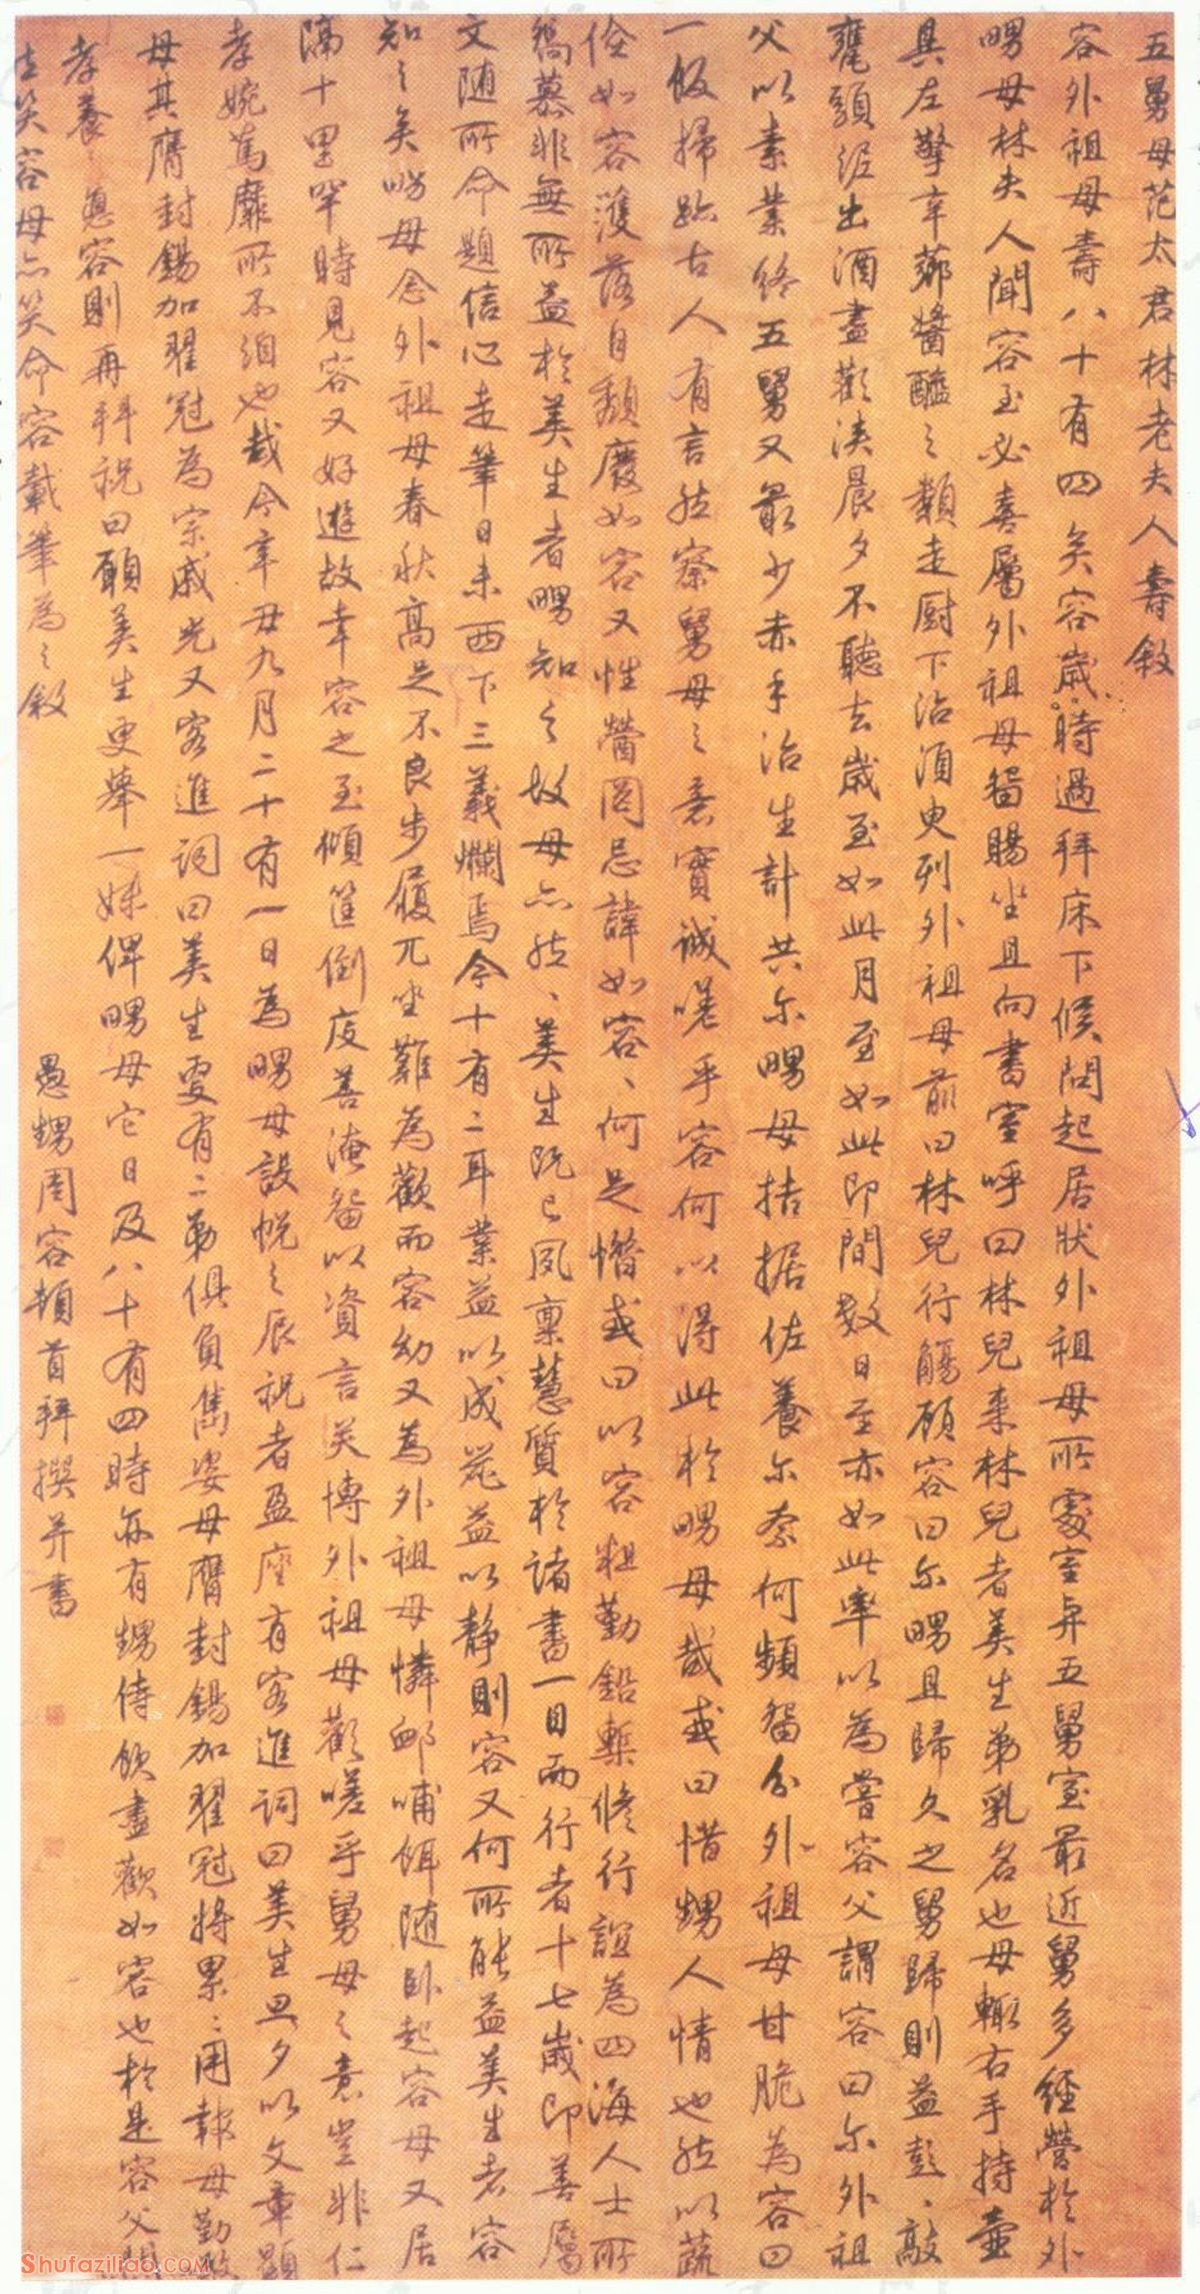 五舅母范太君林老夫人壽敘
容外祖母壽八十有四矣容歲時過拜床下候問起居狀外祖母所處室與五舅室最近舅多經營於外
甥母林夫人聞容至必喜屬外祖母留賜坐且向書室呼曰林兒來林兒者美生弟乳名也母輒右手持壷
具左擎辛薌醬醢之類走厨下治酒史列外祖母前曰林兒行觴顧容曰尔甥且歸久之舅歸則益彭、敲
甕頭浸出酒盡歡浹晨夕不聽去歲至如此月至如此即間数日至亦如此率以為嘗容父謂容曰尔外祖
父以素業終五舅又最少赤手治生計共尔甥母拮据佐養尔奈何頻留分外祖母甘脆為容曰
一飯掃跡古人有言然察舅母之意實誠嗟乎容何以得此於甥母哉或曰惜甥人情也然以蔬
俭如容濩落自頹廢如容又性嘗罔忌諱如容、何足惜或曰以容粗勤鉛槧修行誼為四海人士所
嚮慕非無所益於美生者甥知之故母亦然、美生既已夙稟慧質於諸書一目而行者十七歲即善屬
文随所命題信心走筆日未西下三義爛焉今十有二耳業益以成蕋益以静則容又何所能益美生者容
知之矣甥母念外祖母春秋高足不良步履兀坐難為歡而容幼又為外祖母憐卹哺餌随卧起容母又居
隔十里罕時見容又好遊故幸容之至傾筐倒庋善淹留以資言笑博外祖母歡嗟乎舅母之意豈非仁
孝婉篤靡所不洎也哉今年母九月二十有一日為甥母設帨之辰祝者盈座有客進詞曰美生旦夕以文章顯
母其膺封錫加翟冠為宗戚光又客進詞曰美生更有二弟俱負雋姿母膺封錫加翟冠將累、用報母勤
孝養、憊容則再拜祝曰願美生更舉一妹俾甥母它日及八十有四時亦有甥侍飲盡歡如容也於是容父
大笑容母亦笑命容載筆為之敘
愚甥周容頓首拜撰并書
Shufaziliao.COM